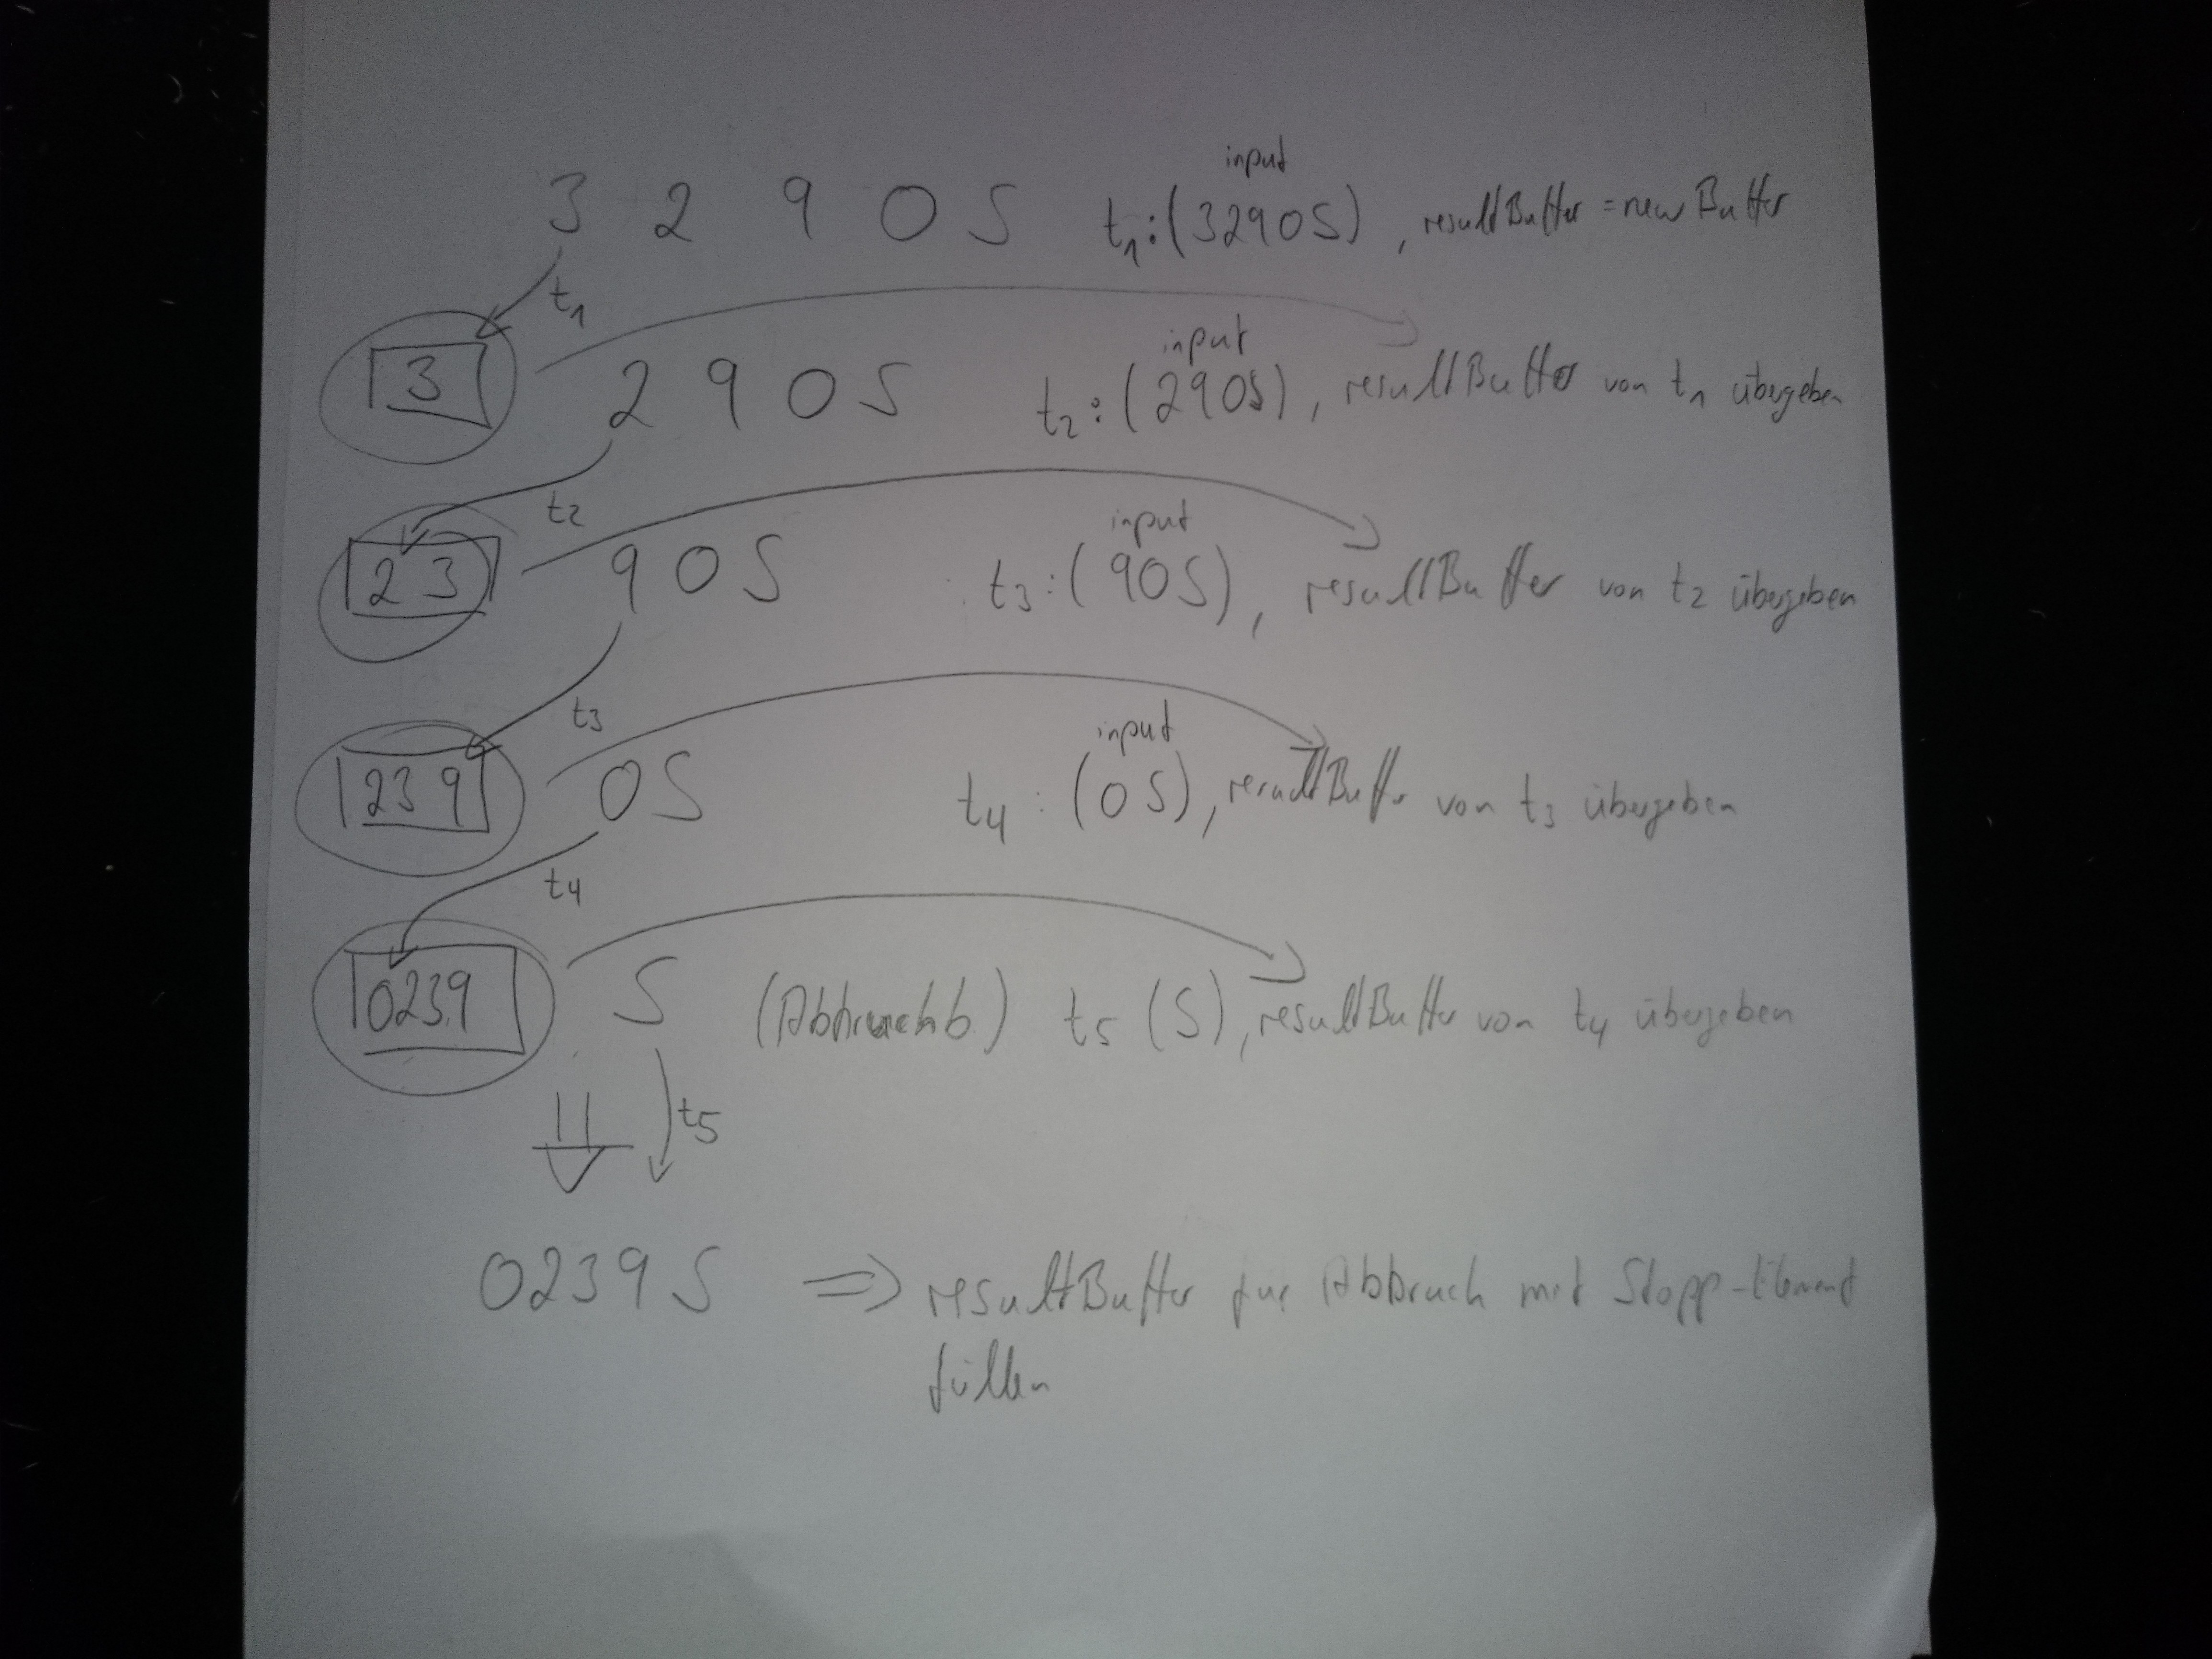 input
3 2 9 0 S t1:(3290S), resultBuffer = new Buffer
t1
input
3 2 9 0 S t2:(290S), resultBuffer von t1 übergeben
t2
input
2 3 9 0 S t3:(90S), resultBuffer von t2 übergeben
t3
input
2 3 9 0 S t4:(0S), resultBuffer von t3 übergeben
t4
0239 S (Abbruchb.) t5 (S), resultBuffer von t4 übergeben
t5
0239S => resultBuffer für Abbruch mit Stopp-Element
füllen